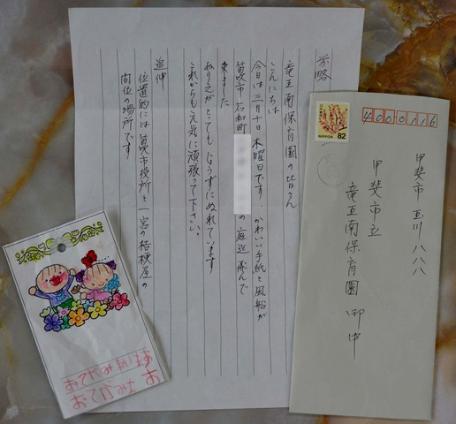 前略
竜王南保育園の皆さん
こんにちは
今日は三月十日木曜日です かわいい手紙と風船が
笛吹市石和町
の庭に飛んで
来ました
ぬりえがとてもじょうずにぬれています
これからも元気に頑張って下さい。
追伸
位置的には笛吹市役所と一宮の桔梗屋の
同位の場所です
4000116
甲斐市玉川八八八
甲斐市立
竜王南保育園 御中
82
NIPPON
おてがみ
おてがみ